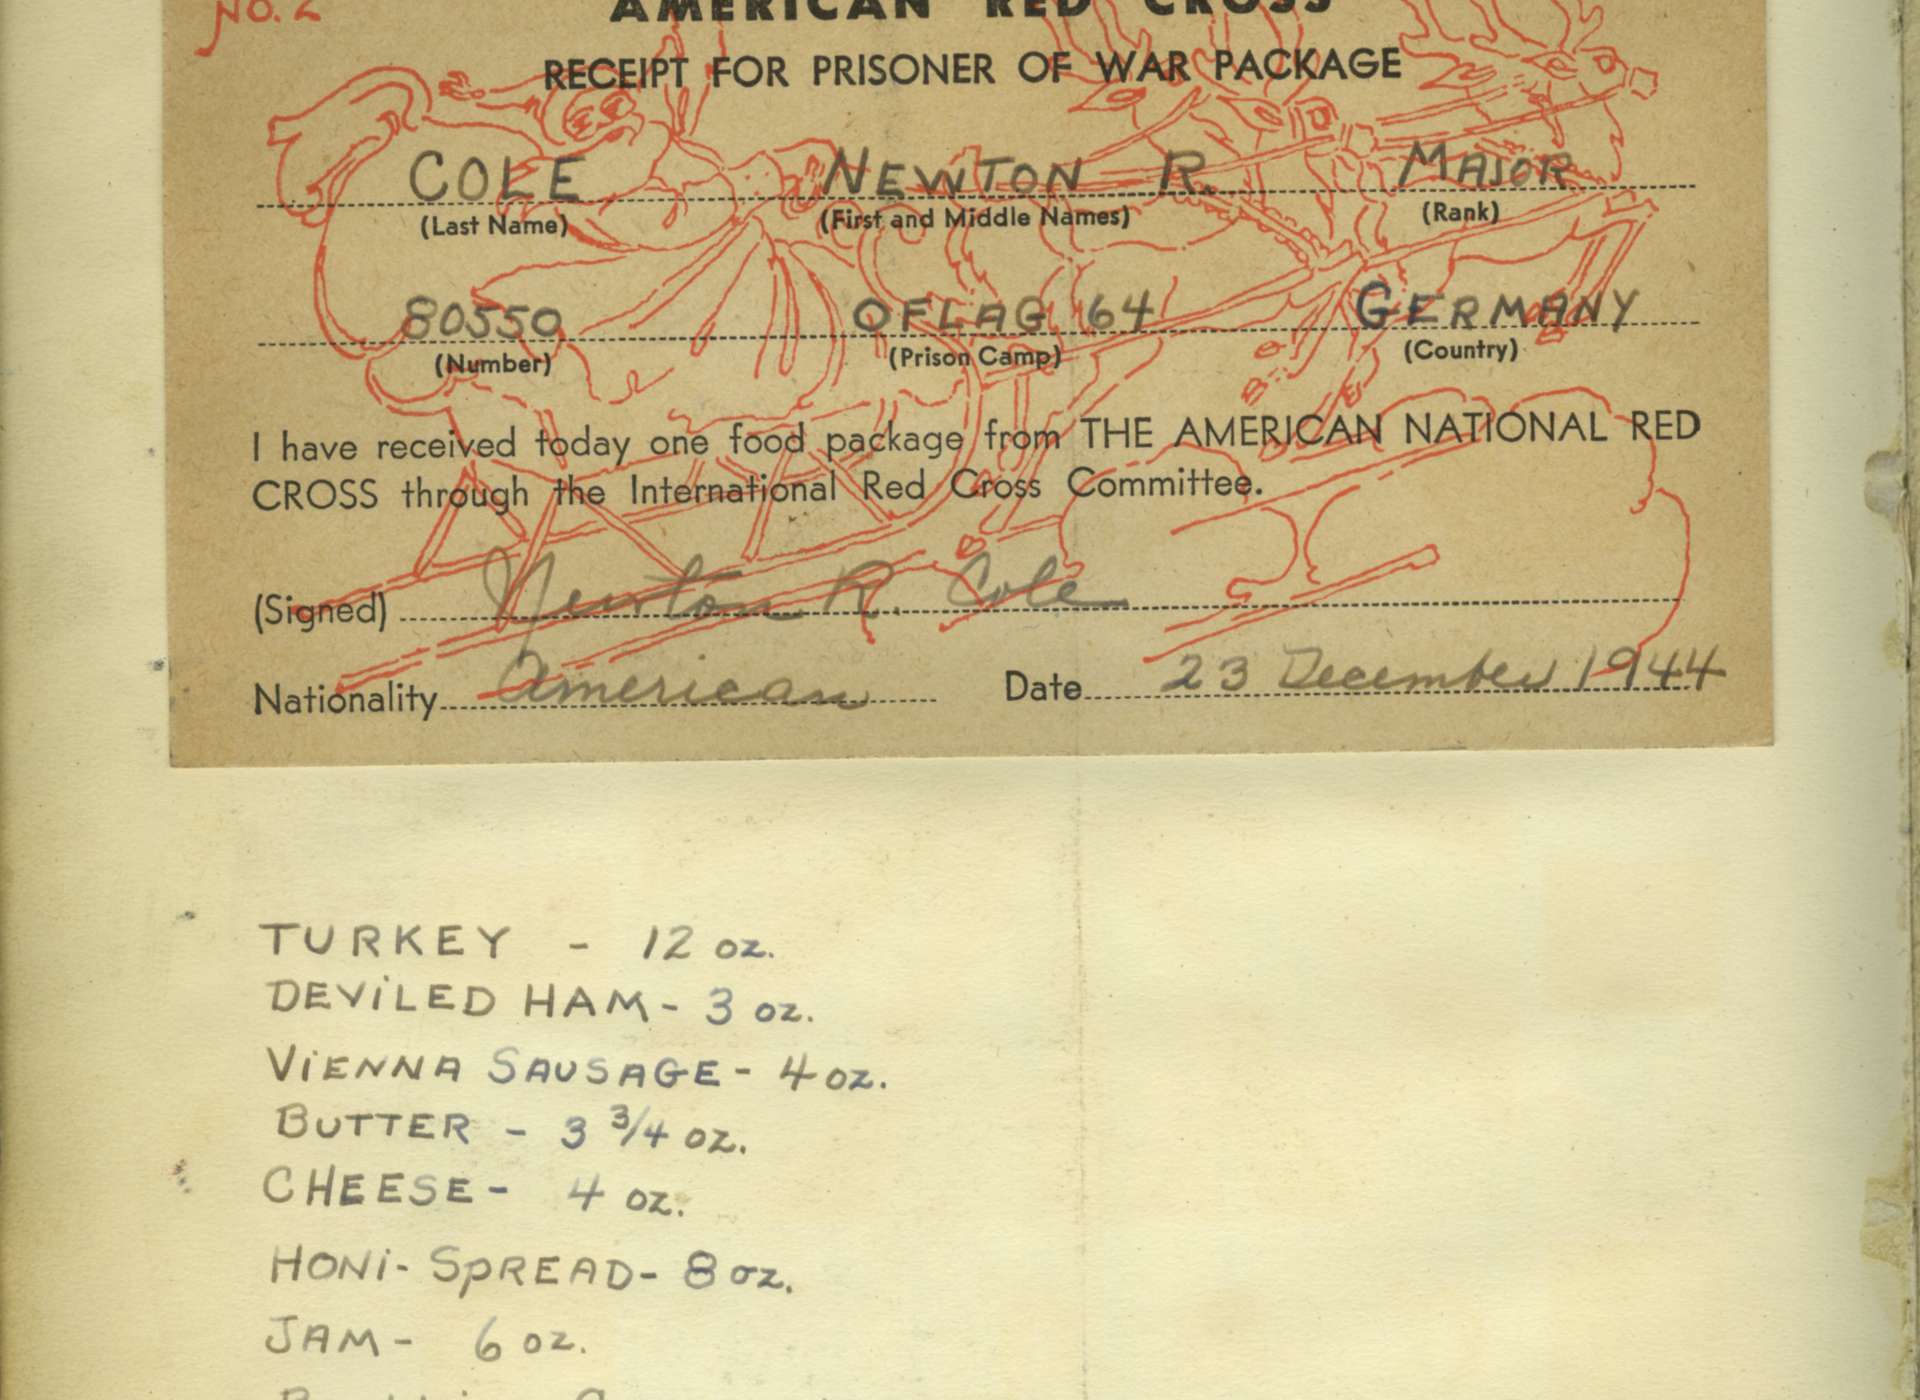 NO. 2
AMERICAN RED CROSS
RECEIPT FOR PRISONER OF WAR PACKAGE
COLE NEWTON R. MAJOR
(Last Name) (First and Middle Names) (Rank)
80550 OFLAG 64 GERMANY
(Number) (Prison Camp) (Country)
I have received today one food package from THE AMERICAN NATIONAL RED
CROSS through the International Red Cross Committee.
(Signed) Newton R. Cole
Nationality American Date 23 December 1944
TURKEY - 12 oz.
DEViLED HAM - 3 oz.
ViENNA SAUSAGE - 4 oz.
BUTTER - 3 3/4 oz.
CHEESE - 4 oz.
HONi-SPREAD - 8 oz.
JAM - 6 oz.